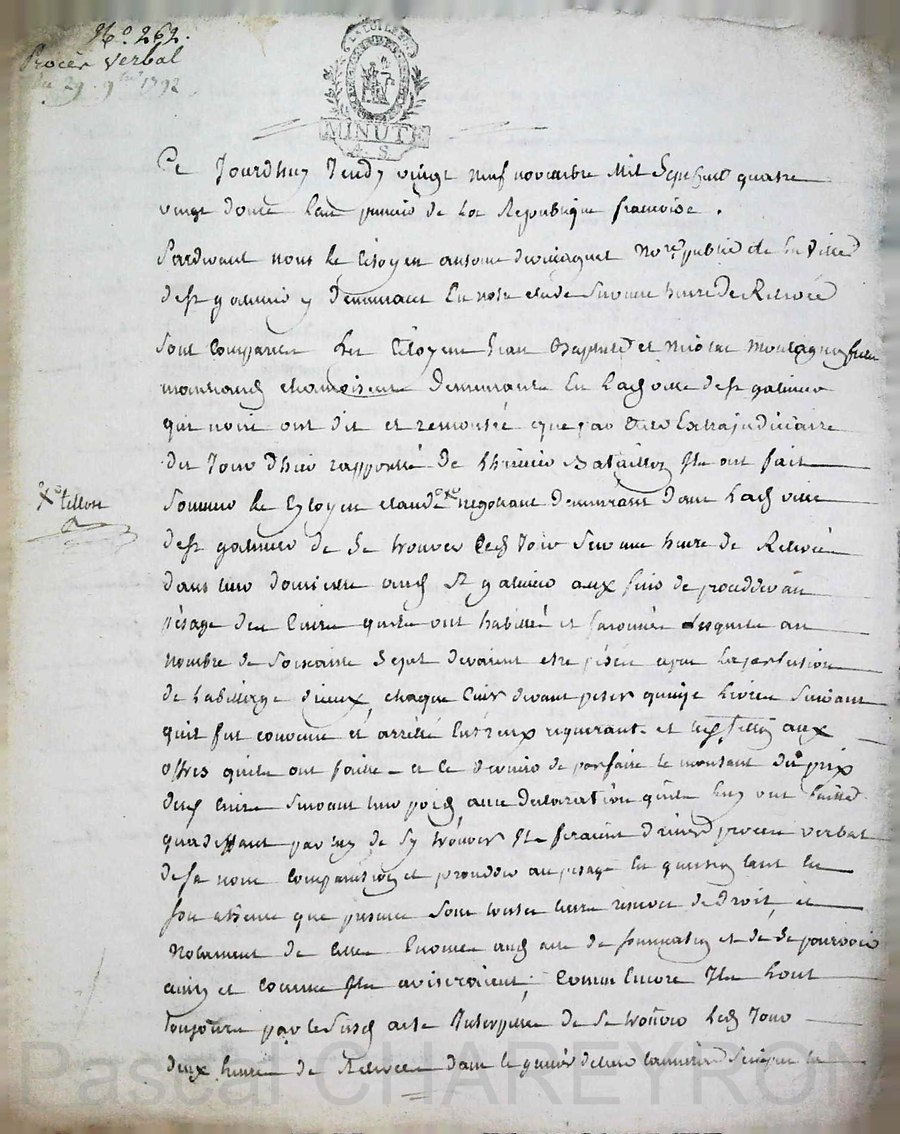 N.° 262.
Procès Verbal
du 29. 9bre 1792
LA LOI LE ROI
MINUTE
A. S.
Ce Jourdhuy Jeudy vingt neuf novembre Mil Sept Cent quatre
vingt douze Lan premier de La Republique francoise.
Pardevant nous Le Citoyen antoine Nore. public de La ville
de st galmier y demeurant En notre etude Sur une heure de Relevée
Sont Comparus Les Citoyens Jean Baptiste et Nicolas Montagny freres
marchands chamoiseurs Demeurants En Lad. ville de st galmier
qui nous ont dit et remontré que par acte Extrajudiciaire
du Jour dhier rapporté de Bataillon Ils ont fait
Sommer Le Citoyen claude Xo negotiant demeurant dans Lad. ville
Xo tellon
de st galmier de Se trouver Ced. Jour Sur une heure de Relevée
dans leur domicille aud. St galmier aux fins de proceder au
pésage des Cuirs quils ont habillés et faconnés desquels au
nombre de Soixante Sept devaient etre pésés apres La perfection
de Labillage diceux, chaque Cuir devant peser quinze Livres Suivant
quil fut convenu et arrêté Entreux requerants et led. tellon aux
offres quils ont faittes et ce dernier de parfaire le montant du prix
desd. Cuirs Suivant leur poid avec declaration quils Luy ont faitte
qua deffaut par luy de Sy trouver Ils feraient dresser procès verbal
de Sa non Comparution et proceder au pesage En question tant En
Son absence que presence Sous toutes leurs reserves de droit, et
Notament de celles Enoncées aud. acte de Sommation et de Se pourvoir
ainsy et Comme Ils aviseroient, Comme Encore Ils Lont
toujours par le Susd. acte Interpellé de Se trouver Led. Jour
deux heures de Relevée dans le
Pascal CHAREYRON